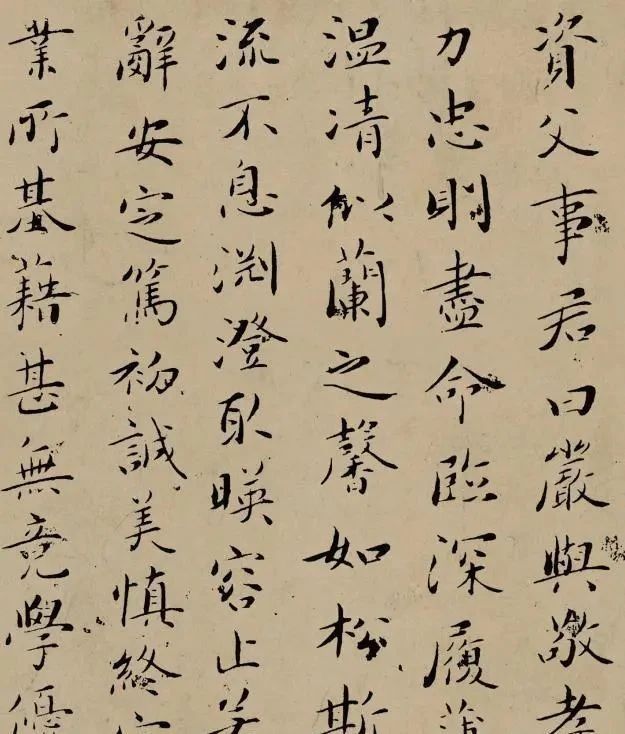 資父事君曰嚴與敬孝
力忠則盡命臨深履薄
温凊似蘭之馨如松斯
流不息淵澄取暎容止若
辭安定篤初誠美慎終宜
業所基藉甚無竟學優